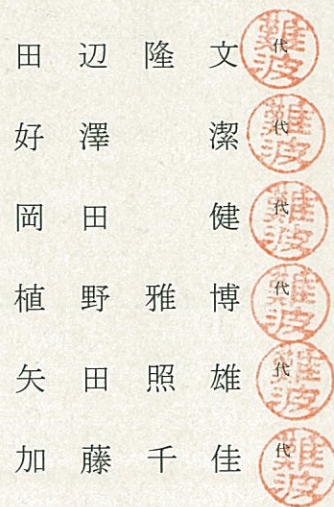 田辺隆文 代 難波
好澤 潔 代 難波
岡田 健 代 難波
植野雅博 代 難波
矢田照雄 代 難波
加藤千佳 代 難波